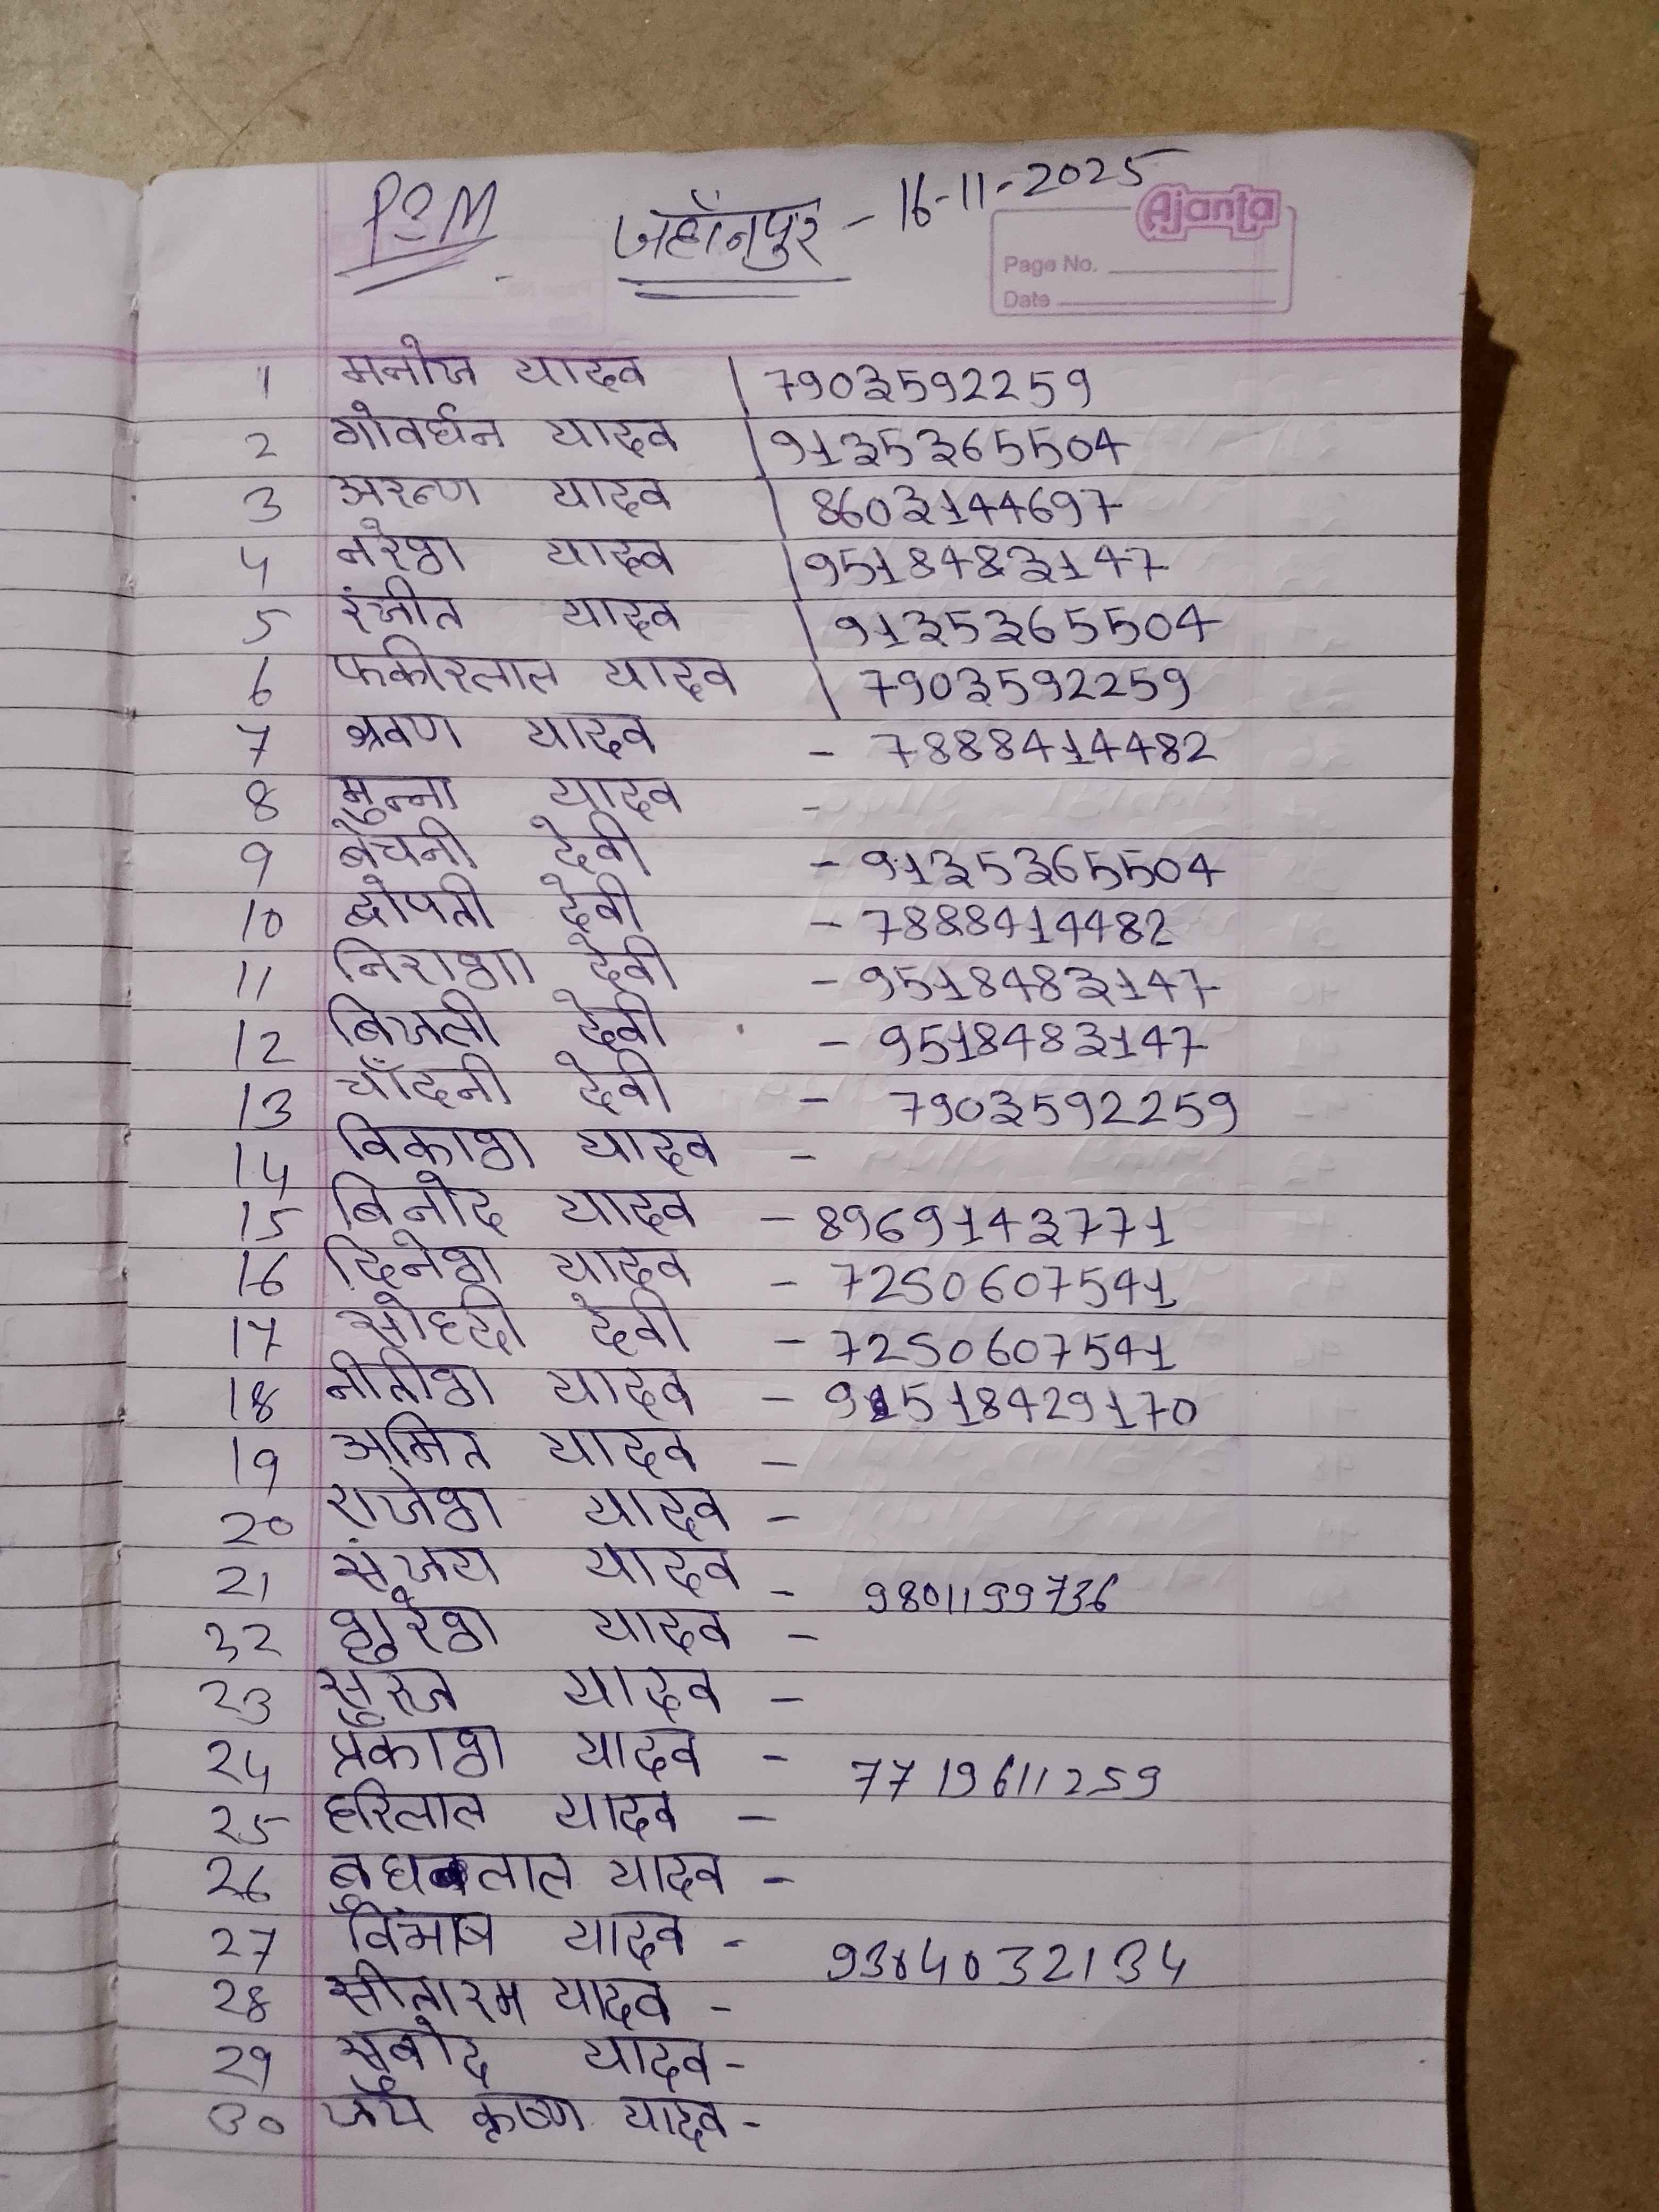 P2M जहाँनपुर - 16-11-2025
Ajanta
Page No.
Date
1 मनोज यादव | 7903592259
2 गोवर्धन यादव | 9135365504
3 अरुण यादव | 8603144697
4 नरेश यादव | 9518483147
5 रंजीत यादव | 9135365504
6 फकीरलाल यादव | 7903592259
7 श्रवण यादव - 7888414482
8 मुन्ना यादव -
9 बेचनी देवी - 9135365504
10 द्रोपती देवी - 7888414482
11 निराशा देवी - 9518483147
12 बिजली देवी - 9518483147
13 चाँदनी देवी - 7903592259
14 विकाश यादव -
15 बिनोद यादव - 8969143771
16 दिनेश यादव - 7250607541
17 सोहदी देवी - 7250607541
18 नीतीश यादव - 91518429170
19 अमित यादव -
20 राजेश यादव -
21 संजय यादव - 9801199736
32 शुरेश यादव -
23 सुरज यादव -
24 प्रकाश यादव - 7719611259
25 हरिलाल यादव -
26 बुधलाल यादव -
27 यादव - 9304032134
28 सीताराम यादव -
29 सुबोद यादव -
30 जय कृष्ण यादव -